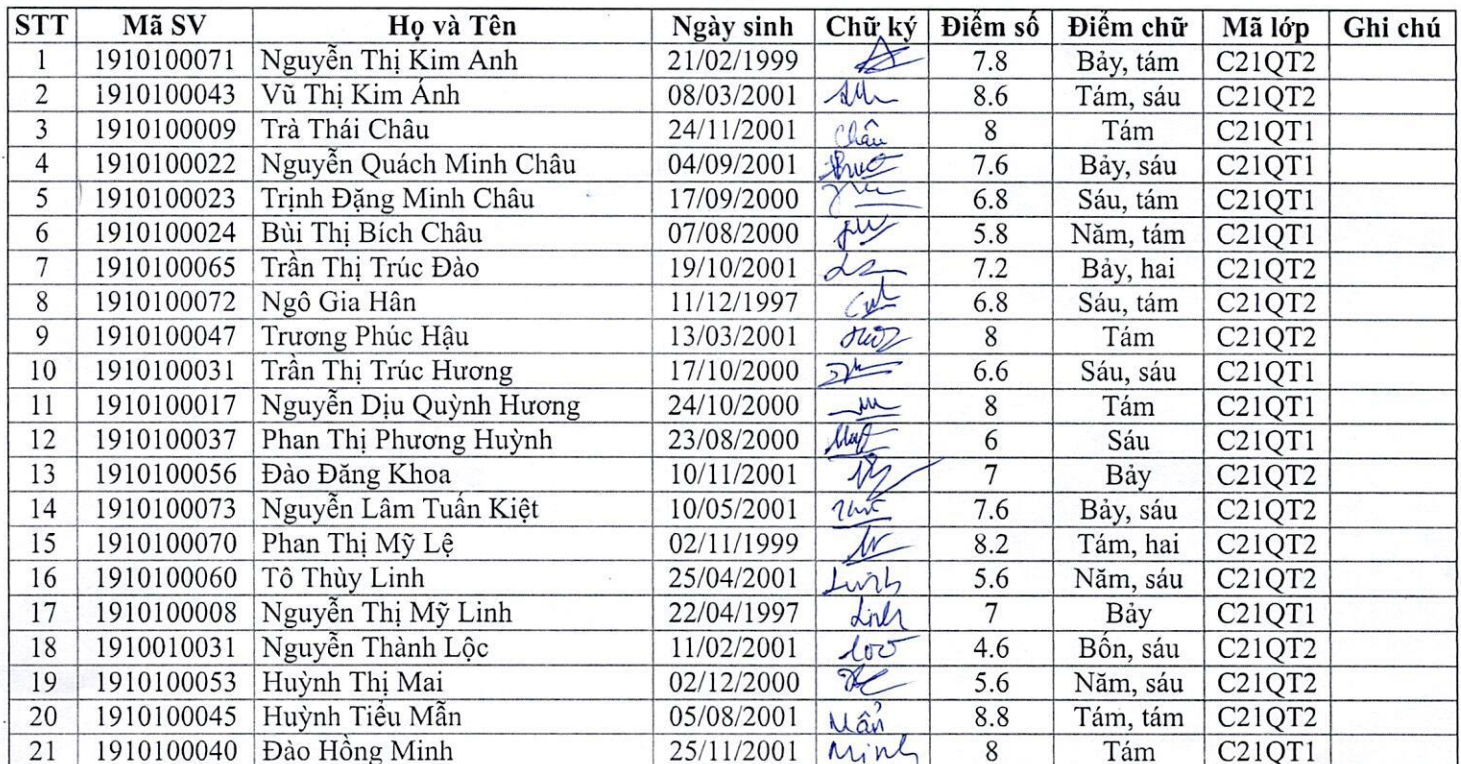 STT Mã SV Họ và Tên Ngày sinh Chữ ký Điểm số Điểm chữ Mã lớp Ghi chú
1 1910100071 Nguyễn Thị Kim Anh 21/02/1999 7.8 Bảy, tám C21QT2
2 1910100043 Vũ Thị Kim Ánh 08/03/2001 8.6 Tám, sáu C21QT2
3 1910100009 Trà Thái Châu 24/11/2001 Châu 8 Tám C21QT1
4 1910100022 Nguyễn Quách Minh Châu 04/09/2001 7.6 Bảy, sáu C21QT1
5 1910100023 Trịnh Đặng Minh Châu 17/09/2000 6.8 Sáu, tám C21QT1
6 1910100024 Bùi Thị Bích Châu 07/08/2000 5.8 Năm, tám C21QT1
7 1910100065 Trần Thị Trúc Đào 19/10/2001 7.2 Bảy, hai C21QT2
8 1910100072 Ngô Gia Hân 11/12/1997 6.8 Sáu, tám C21QT2
9 1910100047 Trương Phúc Hậu 13/03/2001 8 Tám C21QT2
10 1910100031 Trần Thị Trúc Hương 17/10/2000 6.6 Sáu, sáu C21QT1
11 1910100017 Nguyễn Dịu Quỳnh Hương 24/10/2000 8 Tám C21QT1
12 1910100037 Phan Thị Phương Huỳnh 23/08/2000 6 Sáu C21QT1
13 1910100056 Đào Đăng Khoa 10/11/2001 7 Bảy C21QT2
14 1910100073 Nguyễn Lâm Tuấn Kiệt 10/05/2001 7.6 Bảy, sáu C21QT2
15 1910100070 Phan Thị Mỹ Lệ 02/11/1999 8.2 Tám, hai C21QT2
16 1910100060 Tô Thùy Linh 25/04/2001 Linh 5.6 Năm, sáu C21QT2
17 1910100008 Nguyễn Thị Mỹ Linh 22/04/1997 Linh 7 Bảy C21QT1
18 1910010031 Nguyễn Thành Lộc 11/02/2001 4.6 Bốn, sáu C21QT2
19 1910100053 Huỳnh Thị Mai 02/12/2000 5.6 Năm, sáu C21QT2
20 1910100045 Huỳnh Tiểu Mẫn 05/08/2001 Mẩn 8.8 Tám, tám C21QT2
21 1910100040 Đào Hồng Minh 25/11/2001 Minh 8 Tám C21QT1